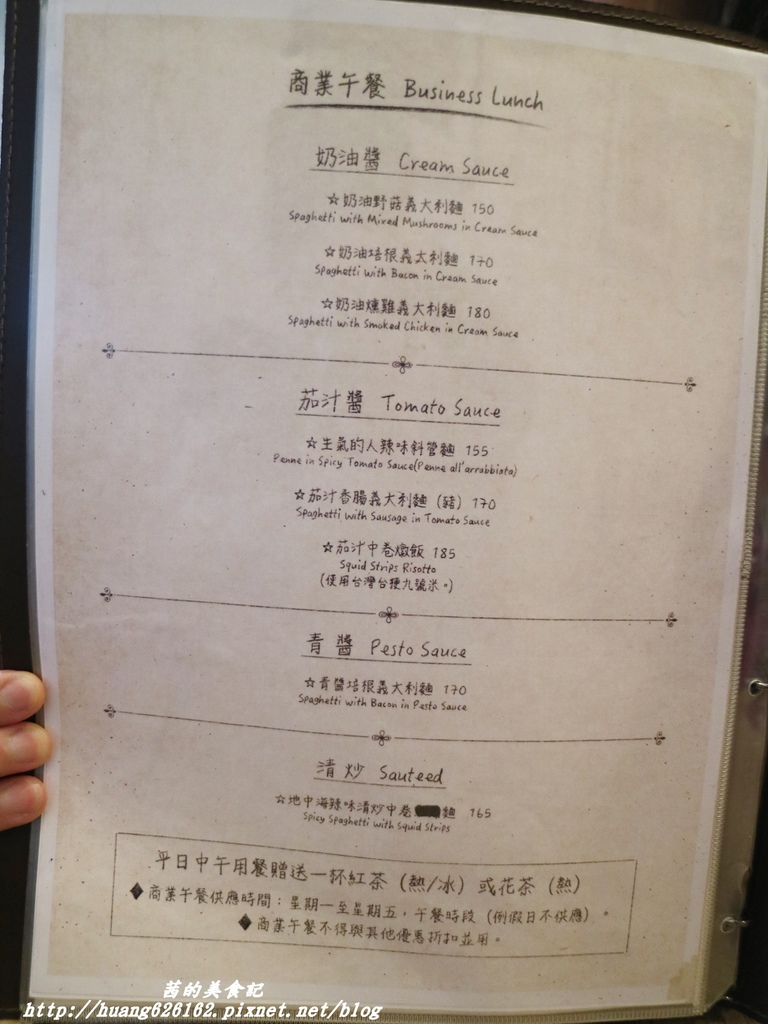 商業午餐 Business Lunch
奶油醬 Cream Sauce
☆奶油野菇義大利麵 150
Spaghetti with Mixed Mushrooms in Cream Sauce
☆奶油培根義大利麵 170
Spaghetti with Bacon in Cream Sauce
☆奶油燻雞義大利麵 180
Spaghetti with Smoked Chicken in Cream Sauce
茄汁醬 Tomato Sauce
☆生氣的人辣味斜管麵 155
Penne in Spicy Tomato Sauce(Penne all'arrabbiata)
☆茄汁香腸義大利麵 (豬) 170
Spaghetti with Sausage in Tomato Sauce
☆茄汁中卷燉飯 185
Squid Strips Risotto
(使用台灣台梗九號米。)
青醬 Pesto Sauce
☆青醬培根義大利麵 170
Spaghetti with Bacon in Pesto Sauce
清炒 Sauteed
☆地中海辣味清炒中卷麵 165
Spicy Spaghetti with Squid Strips
平日中午用餐贈送一杯紅茶 (熱/冰) 或花茶 (熱)
◆商業午餐供應時間：星期一至星期五，午餐時段 (例假日不供應)。
◆商業午餐不得與其他優惠折扣並用。
茜的美食記
http://huang626162.pixnet.net/blog